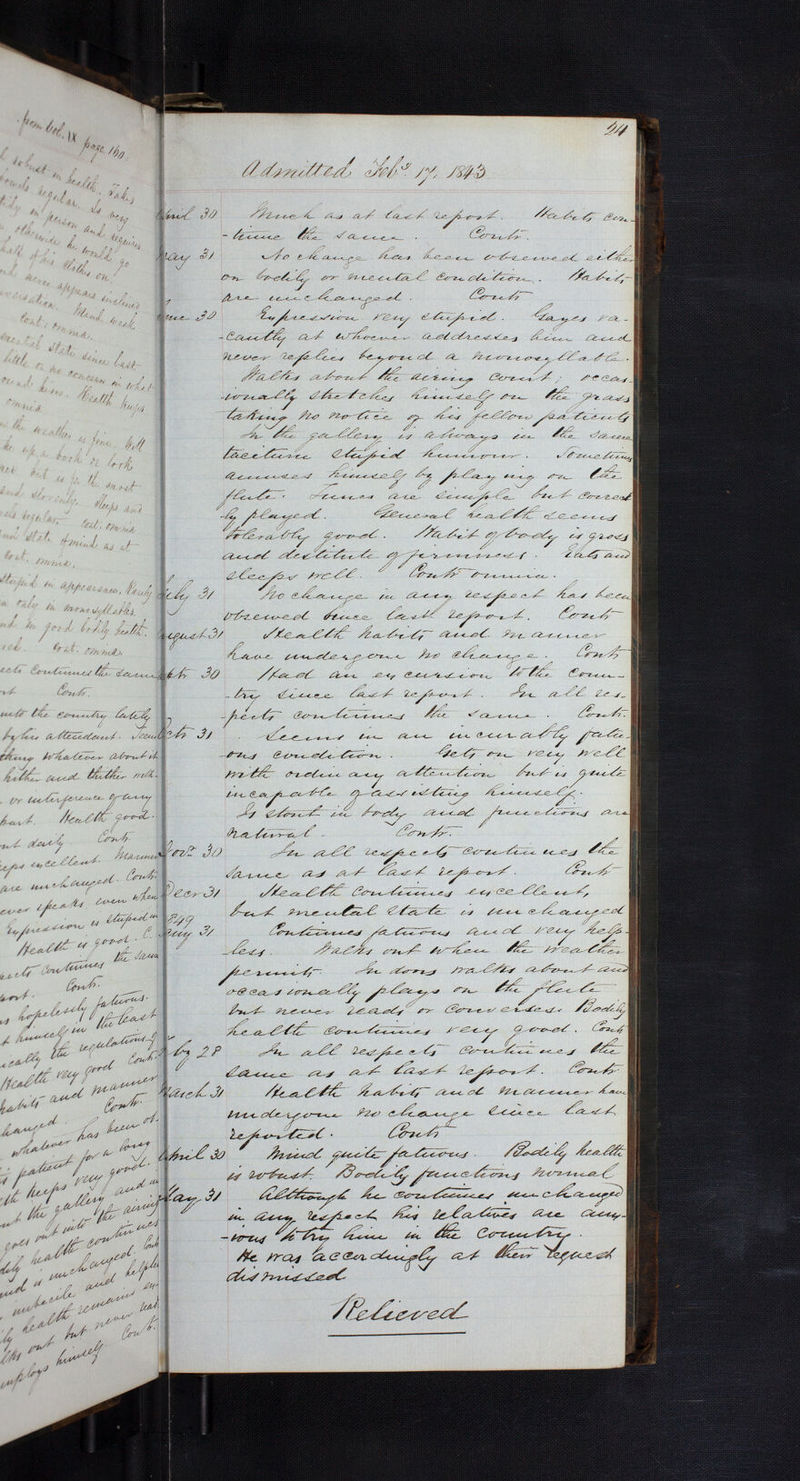 from Vol. IX page 160.
robust in health. Takes
regular. Is very
in person and requires
otherwise he would go
half of his clothes on
never appears inclined
Cont. omnia.
mental state since last
little or no concern in what
Health keeps
omnia
the weather is fine. Will
up a book or look
but is for the most
slovenly. Sleeps and
regular. Cont. omnia
state of mind as at
Cont. omnia.
Stupid in appearance. Rarely
only in monosyllables
in good bodily health.
Cont. omnia
continues the same
Contr.
into the country lately
by his attendant. Seems
thing whatever about it
hither and thither with
or interference of any
Health good.
out daily Contr
excellent Manner
are unchanged. Contr
ever speaks even when
Expression is stupid in
Health is good. C.
continues the same
Contr.
is hopelessly fatuous.
himself in the least
the regulations of
Health very good Contr
habits and manner
Contr.
whatever has been ob
patient for a long
keeps very good.
the gallery and in
goes out into the airing
health continues
is unchanged. Contr
imbecile and helpless
health remains
out but never
employs himself Contr.
24
Admitted Feby 17. 1843
April 30 Much as at last report. Habits con-
-tinue the same. Contr.
May 31 No change has been observed either
on bodily or mental condition. Habits
are unchanged. Contr
June 30 Expression very stupid. Gazes va-
-cantly at whoever addresses him and
never replies beyond a monosyllable.
Walks about the airing court; occas-
ionally stretches himself on the grass
taking no notice of his fellow patients
In the gallery is always in the same
taciturn stupid humour. Sometimes
amuses himself by playing on the
flute. Tunes are simple but correct
-ly played. General health seems
tolerably good. Habit of body is gross
and destitute of firmness. Eats and
sleeps well. Contr omnia.
July 31 No change in any respect has been
observed since last report. Contr
August 31 Health habits and manner
have undergone no change. Contr
Septr 30 Had an excursion to the coun-
-try since last report. In all res-
-pects continues the same. Contr.
Octr 31 Seems in an incurably fatu-
-ous condition. Gets on very well
with ordinary attention but is quite
incapable of assisting himself.
Is stout in body and functions are
natural. Contr.
Novr 30 In all respects continues the
same as at last report. Contr
Decr 31 Health continues excellent,
but mental state is unchanged
1849
Jany 31 Continues fatuous and very help-
less. Walks out when the weather
permits. In doors walks about and
occasionally plays on the flute
but never reads or converses. Bodily
health continues very good. Contr
Feby 28 In all respects continues the
same as at last report. Contr
March 31 Health habits and manner have
undergone no change since last
reported. Contr
April 30 Mind quite fatuous. Bodily health
is robust. Bodily functions normal
May 31 Although he continues unchanged
in any respect his relatives are anx-
-ious to try him in the country.
He was accordingly at their request
dismissed
Relieved